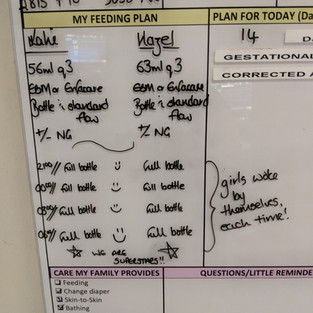 MY FEEDING PLAN
PLAN FOR TODAY (Da
Hazel
14
D
GESTATIONAL
CORRECTED A
56ml q3
63ml q3
EBM or Enfacare
EBM or Enfacare
Bottle c̄ standard flow
Bottle c̄ standard flow
+/- NG
+/- NG
2100// Full bottle Full bottle
0000// Full bottle Full bottle
0300// Full bottle Full bottle
0600// Full bottle Full bottle
girls woke
by
themselves,
each time!
WE ARE
SUPERSTARS!!
CARE MY FAMILY PROVIDES
QUESTIONS/LITTLE REMINDE
Feeding
Change diaper
Skin-to-Skin
Bathing